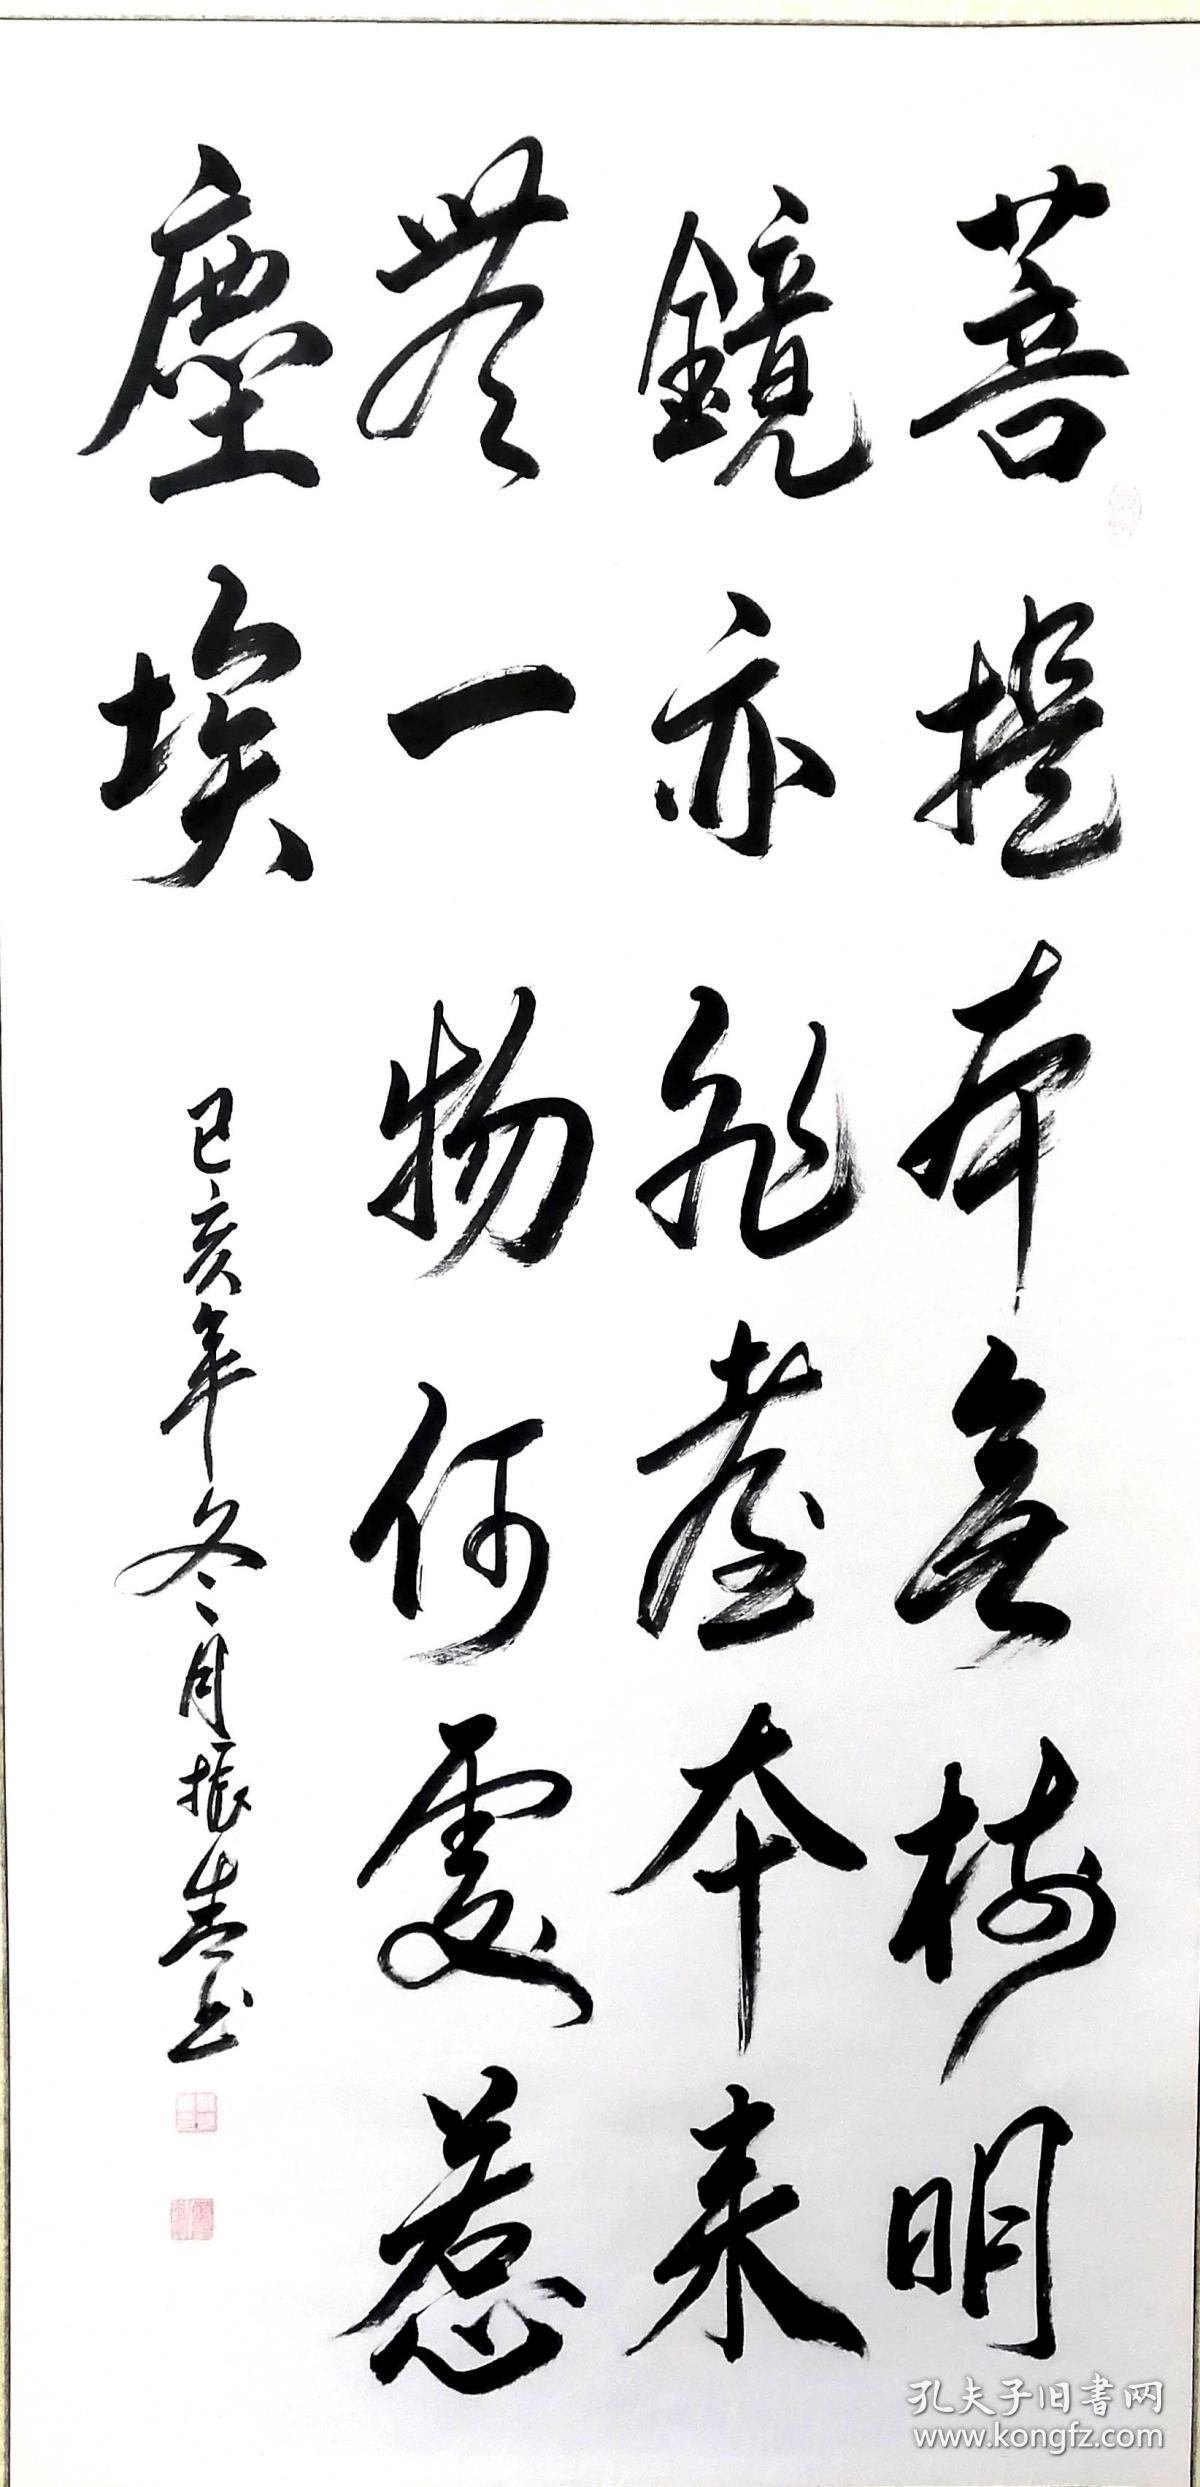 菩提本無樹明
鏡亦非臺本來
無一物何處惹
塵埃
己亥年冬月振声书
孔夫子旧書网
www.kongfz.com